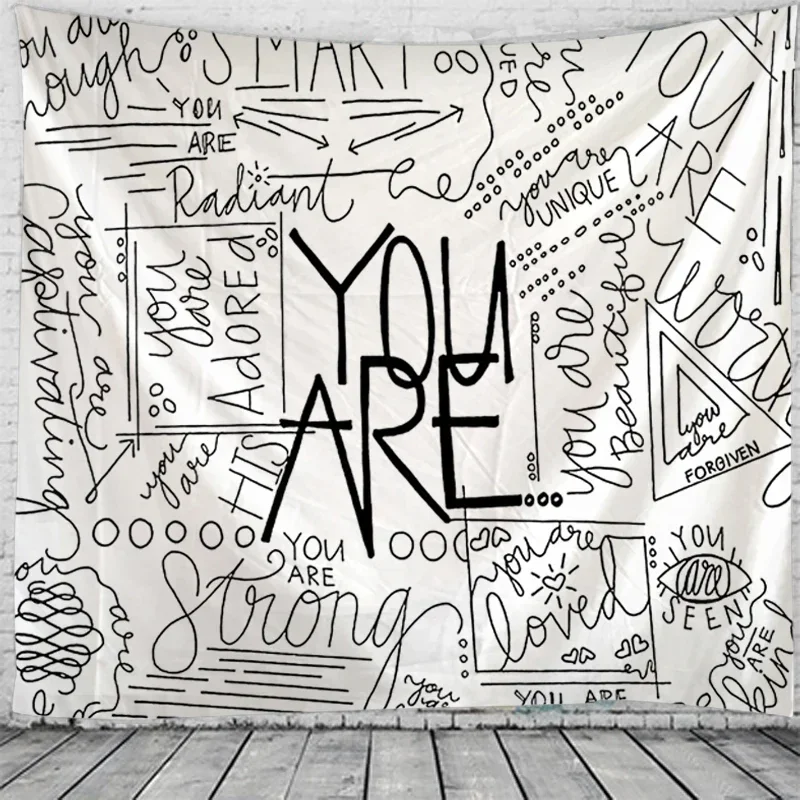 you are
SMART
YOU
ARE
Radiant
you are
UNIQUE
YOU
ARE
you are
captivating
you
are
AdORED
YOU
ARE
you are
Beautiful
you
are
FORGIVEN
you
are
HIS
YOU
ARE
Strong
you are
loved
YOU
are
SEEN
are
you
YOU ARE
you
ARE